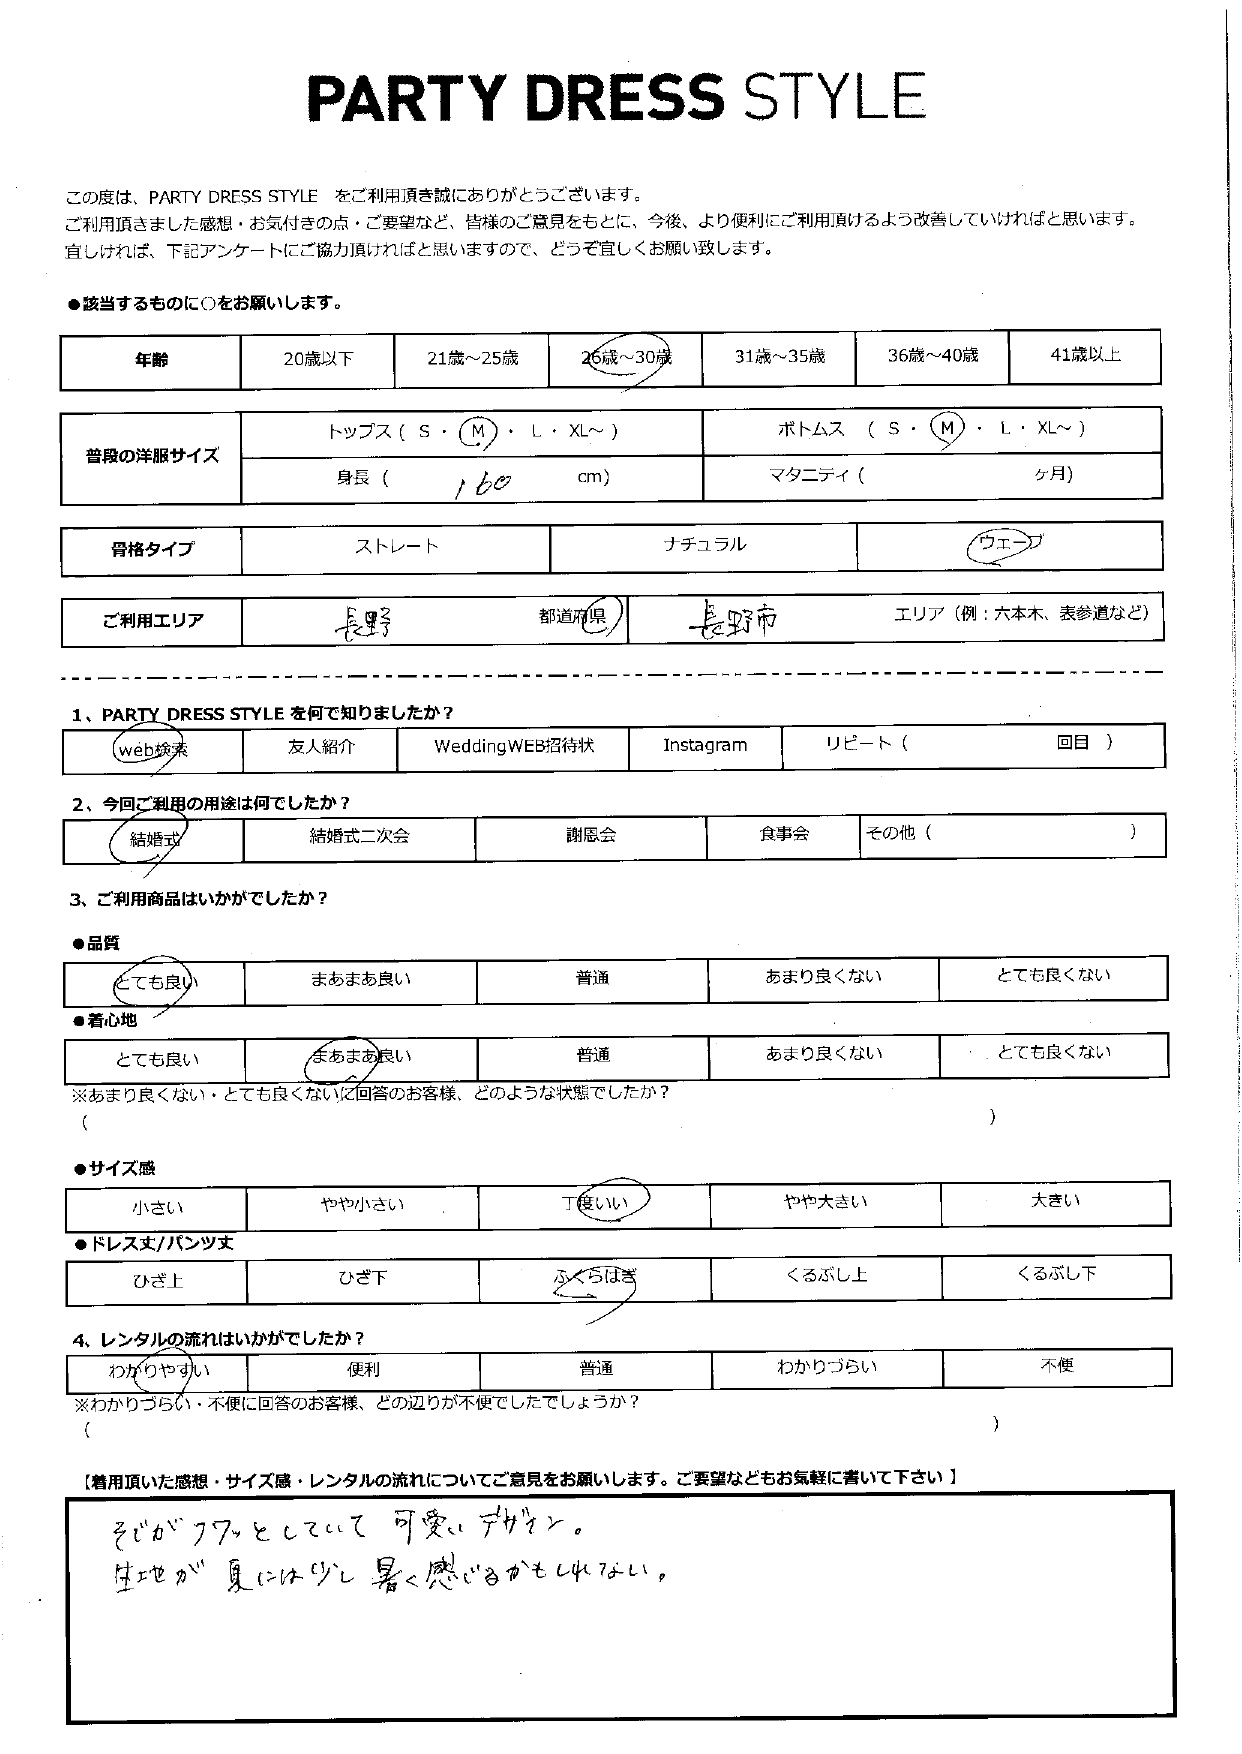 PARTY DRESS STYLE
この度は、PARTY DRESS STYLE　をご利用頂き誠にありがとうございます。
ご利用頂きました感想・お気付きの点・ご要望など、皆様のご意見をもとに、今後、より便利にご利用頂けるよう改善していければと思います。
宜しければ、下記アンケートにご協力頂ければと思いますので、どうぞ宜しくお願い致します。
●該当するものに○をお願いします。
年齢 20歳以下 21歳～25歳 26歳～30歳 31歳～35歳 36歳～40歳 41歳以上
普段の洋服サイズ トップス ( S ・ M ・ L ・ XL～ ) ボトムス ( S ・ M ・ L ・ XL～ )
身長 ( 160 cm) マタニティ ( ヶ月)
骨格タイプ ストレート ナチュラル ウェーブ
ご利用エリア 長野 都道府県 長野市 エリア（例：六本木、表参道など）
1、PARTY DRESS STYLE を何で知りましたか？
web検索 友人紹介 WeddingWEB招待状 Instagram リピート ( 回目 )
2、今回ご利用の用途は何でしたか？
結婚式 結婚式二次会 謝恩会 食事会 その他 ( )
3、ご利用商品はいかがでしたか？
●品質
とても良い まあまあ良い 普通 あまり良くない とても良くない
●着心地
とても良い まあまあ良い 普通 あまり良くない とても良くない
※あまり良くない・とても良くないに回答のお客様、どのような状態でしたか？
( )
●サイズ感
小さい やや小さい 丁度いい やや大きい 大きい
●ドレス丈/パンツ丈
ひざ上 ひざ下 ふくらはぎ くるぶし上 くるぶし下
4、レンタルの流れはいかがでしたか？
わかりやすい 便利 普通 わかりづらい 不便
※わかりづらい・不便に回答のお客様、どの辺りが不便でしたでしょうか？
( )
【着用頂いた感想・サイズ感・レンタルの流れについてご意見をお願いします。ご要望などもお気軽に書いて下さい 】
そでがフワッとしていて 可愛いデザイン。
生地が 夏には少し 暑く感じるかもしれない。